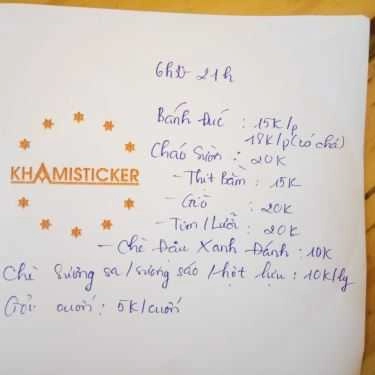 6h30 - 21h
Bánh Đúc : 15K/p
18K/p (có chả)
Cháo Sườn : 20K
- Thịt Bằm : 15K
- Giò : 20K
- Tim / Lưỡi : 20K
- Chè Đậu Xanh Đánh : 10K
Chè Sương sa / sương sáo / hột lựu : 10K/ly
Gỏi cuốn : 5K/cuốn
KHAMISTICKER